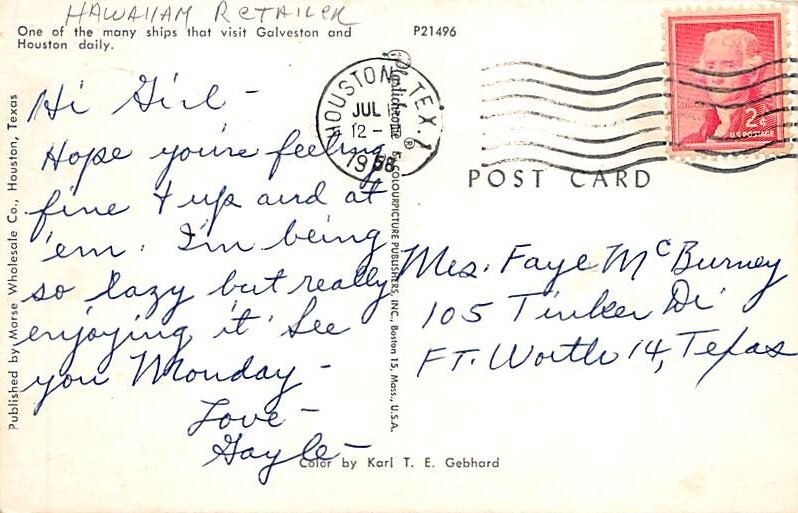 HAWAIIAM RETAILER
One of the many ships that visit Galveston and
Houston daily.
P21496
Hi Girl -
Hope you're feeling
fine & up and at
'em. I'm being
so lazy but really
enjoying it. See
you Monday -
Love -
Gayle -
HOUSTON, TEX.
JUL
12 -
1958
2¢
U.S. POSTAGE
POST CARD
Mrs. Faye McBurney
105 Tinker Dr
FT. Worth 14, Texas
Published by Morse Wholesale Co., Houston, Texas
Plastichrome ® by COLOURPICTURE PUBLISHERS, INC., Boston 15, Mass., U.S.A.
Color by Karl T. E. Gebhard